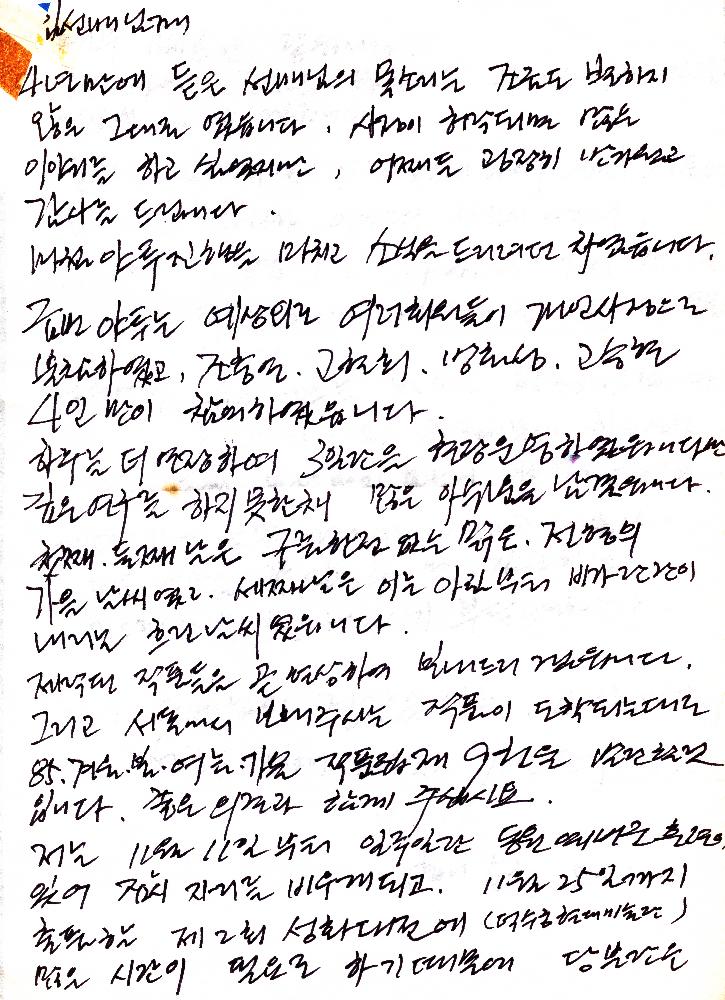 임선배님께
4년만에 들은 선배님의 목소리는 조금도 변하지
않은 그대로 였습니다. 시간이 허락되면 많은
이야기를 하고 싶었지만, 어쨌든 굉장히 반가웠고
감사를 드립니다.
마침 야투진행을 마치고 소식을 드리려던 차였습니다.
금번 야투는 예상외로 여러회원들이 개인사정으로
불참하였고, 조충연. 고현희. 고승현
4인 만이 참여하였습니다.
하루를 더 연장하여 3일간을 현장운동하였습니다만
깊은 연구를 하지 못한채 많은 아쉬움을 남겼습니다.
첫째. 둘째 날은 구름한점 없는 맑은. 전형의
가을 날씨였고. 세째날은 이른 아침부터 비가 간간이
내리는 흐린날씨였습니다.
제작된 작품들을 곧 현상하여 보내드리겠습니다.
그리고 서울에서 보내주시는 작품이 도착되는대로
85.겨울.봄.여름.가을 작품집제 9권을 발간할것
입니다. 좋은 의견과 함께 주십시요.
저는 11월 11일부터 일주일간 동원예비군훈련이
있어 잠시 자리를 비우게되고. 11월 25일까지
출품하는 제2회 성화대전에 (덕수궁현대미술관)
많은 시간이 필요로 하기때문에 당분간은